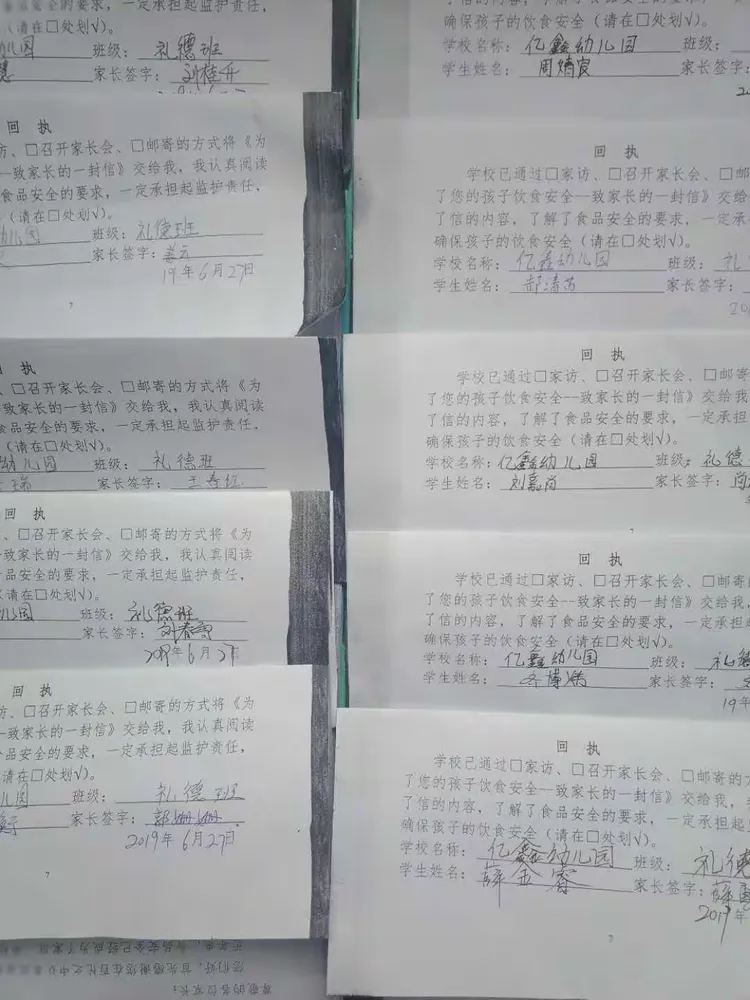 品安全的要求，一定承担起监护责任，
（请在□处划√）。
幼儿园 班级：礼德班
家长签字：刘桂升
回 执
访、□召开家长会、□邮寄的方式将《为
一致家长的一封信》交给我，我认真阅读
食品安全的要求，一定承担起监护责任，
（请在□处划√）。
幼儿园 班级：礼德班
家长签字：姜云
19年6月27日
7
回 执
、□召开家长会、□邮寄的方式将《为
致家长的一封信》交给我，我认真阅读
食品安全的要求，一定承担起监护责任，
（请在□处划√）。
幼儿园 班级：礼德班
家长签字：王春红
回 执
、□召开家长会、□邮寄的方式将《为
一致家长的一封信》交给我，我认真阅读
品安全的要求，一定承担起监护责任，
（请在□处划√）。
儿园 班级：礼德班
家长签字：刘春雪
2019年6月27
回 执
方、□召开家长会、□邮寄的方式将《为
致家长的一封信》交给我，我认真阅读
品安全的要求，一定承担起监护责任，
请在□处划√）。
儿园 班级：礼德班
家长签字：郭姗姗
2019年6月27日
7
尊敬的各位家长：
确保孩子的饮食安全（请在□处划√）。
学校名称：亿鑫幼儿园 班级：
学生姓名：周 家长签字：
回 执
学校已通过□家访、□召开家长会、□邮
了您的孩子饮食安全--致家长的一封信》交给
了信的内容，了解了食品安全的要求，一定承
确保孩子的饮食安全（请在□处划√）。
学校名称：亿鑫幼儿园 班级：礼
学生姓名：郝清 家长签字：
回 执
学校已通过□家访、□召开家长会、□邮寄
了您的孩子饮食安全--致家长的一封信》交给我
了信的内容，了解了食品安全的要求，一定承担
确保孩子的饮食安全（请在□处划√）。
学校名称：亿鑫幼儿园 班级：礼德
学生姓名：刘嘉 家长签字：
回 执
学校已通过□家访、□召开家长会、□邮寄的
了您的孩子饮食安全--致家长的一封信》交给我，
了信的内容，了解了食品安全的要求，一定承担
确保孩子的饮食安全（请在□处划√）。
学校名称：亿鑫幼儿园 班级：礼德
学生姓名：齐博 家长签字：
19年
回 执
学校已通过□家访、□召开家长会、□邮寄的方
了您的孩子饮食安全--致家长的一封信》交给我，
了信的内容，了解了食品安全的要求，一定承担起
确保孩子的饮食安全（请在□处划√）。
学校名称：亿鑫幼儿园 班级：礼德
学生姓名：薛金睿 家长签字：薛
2019年
7